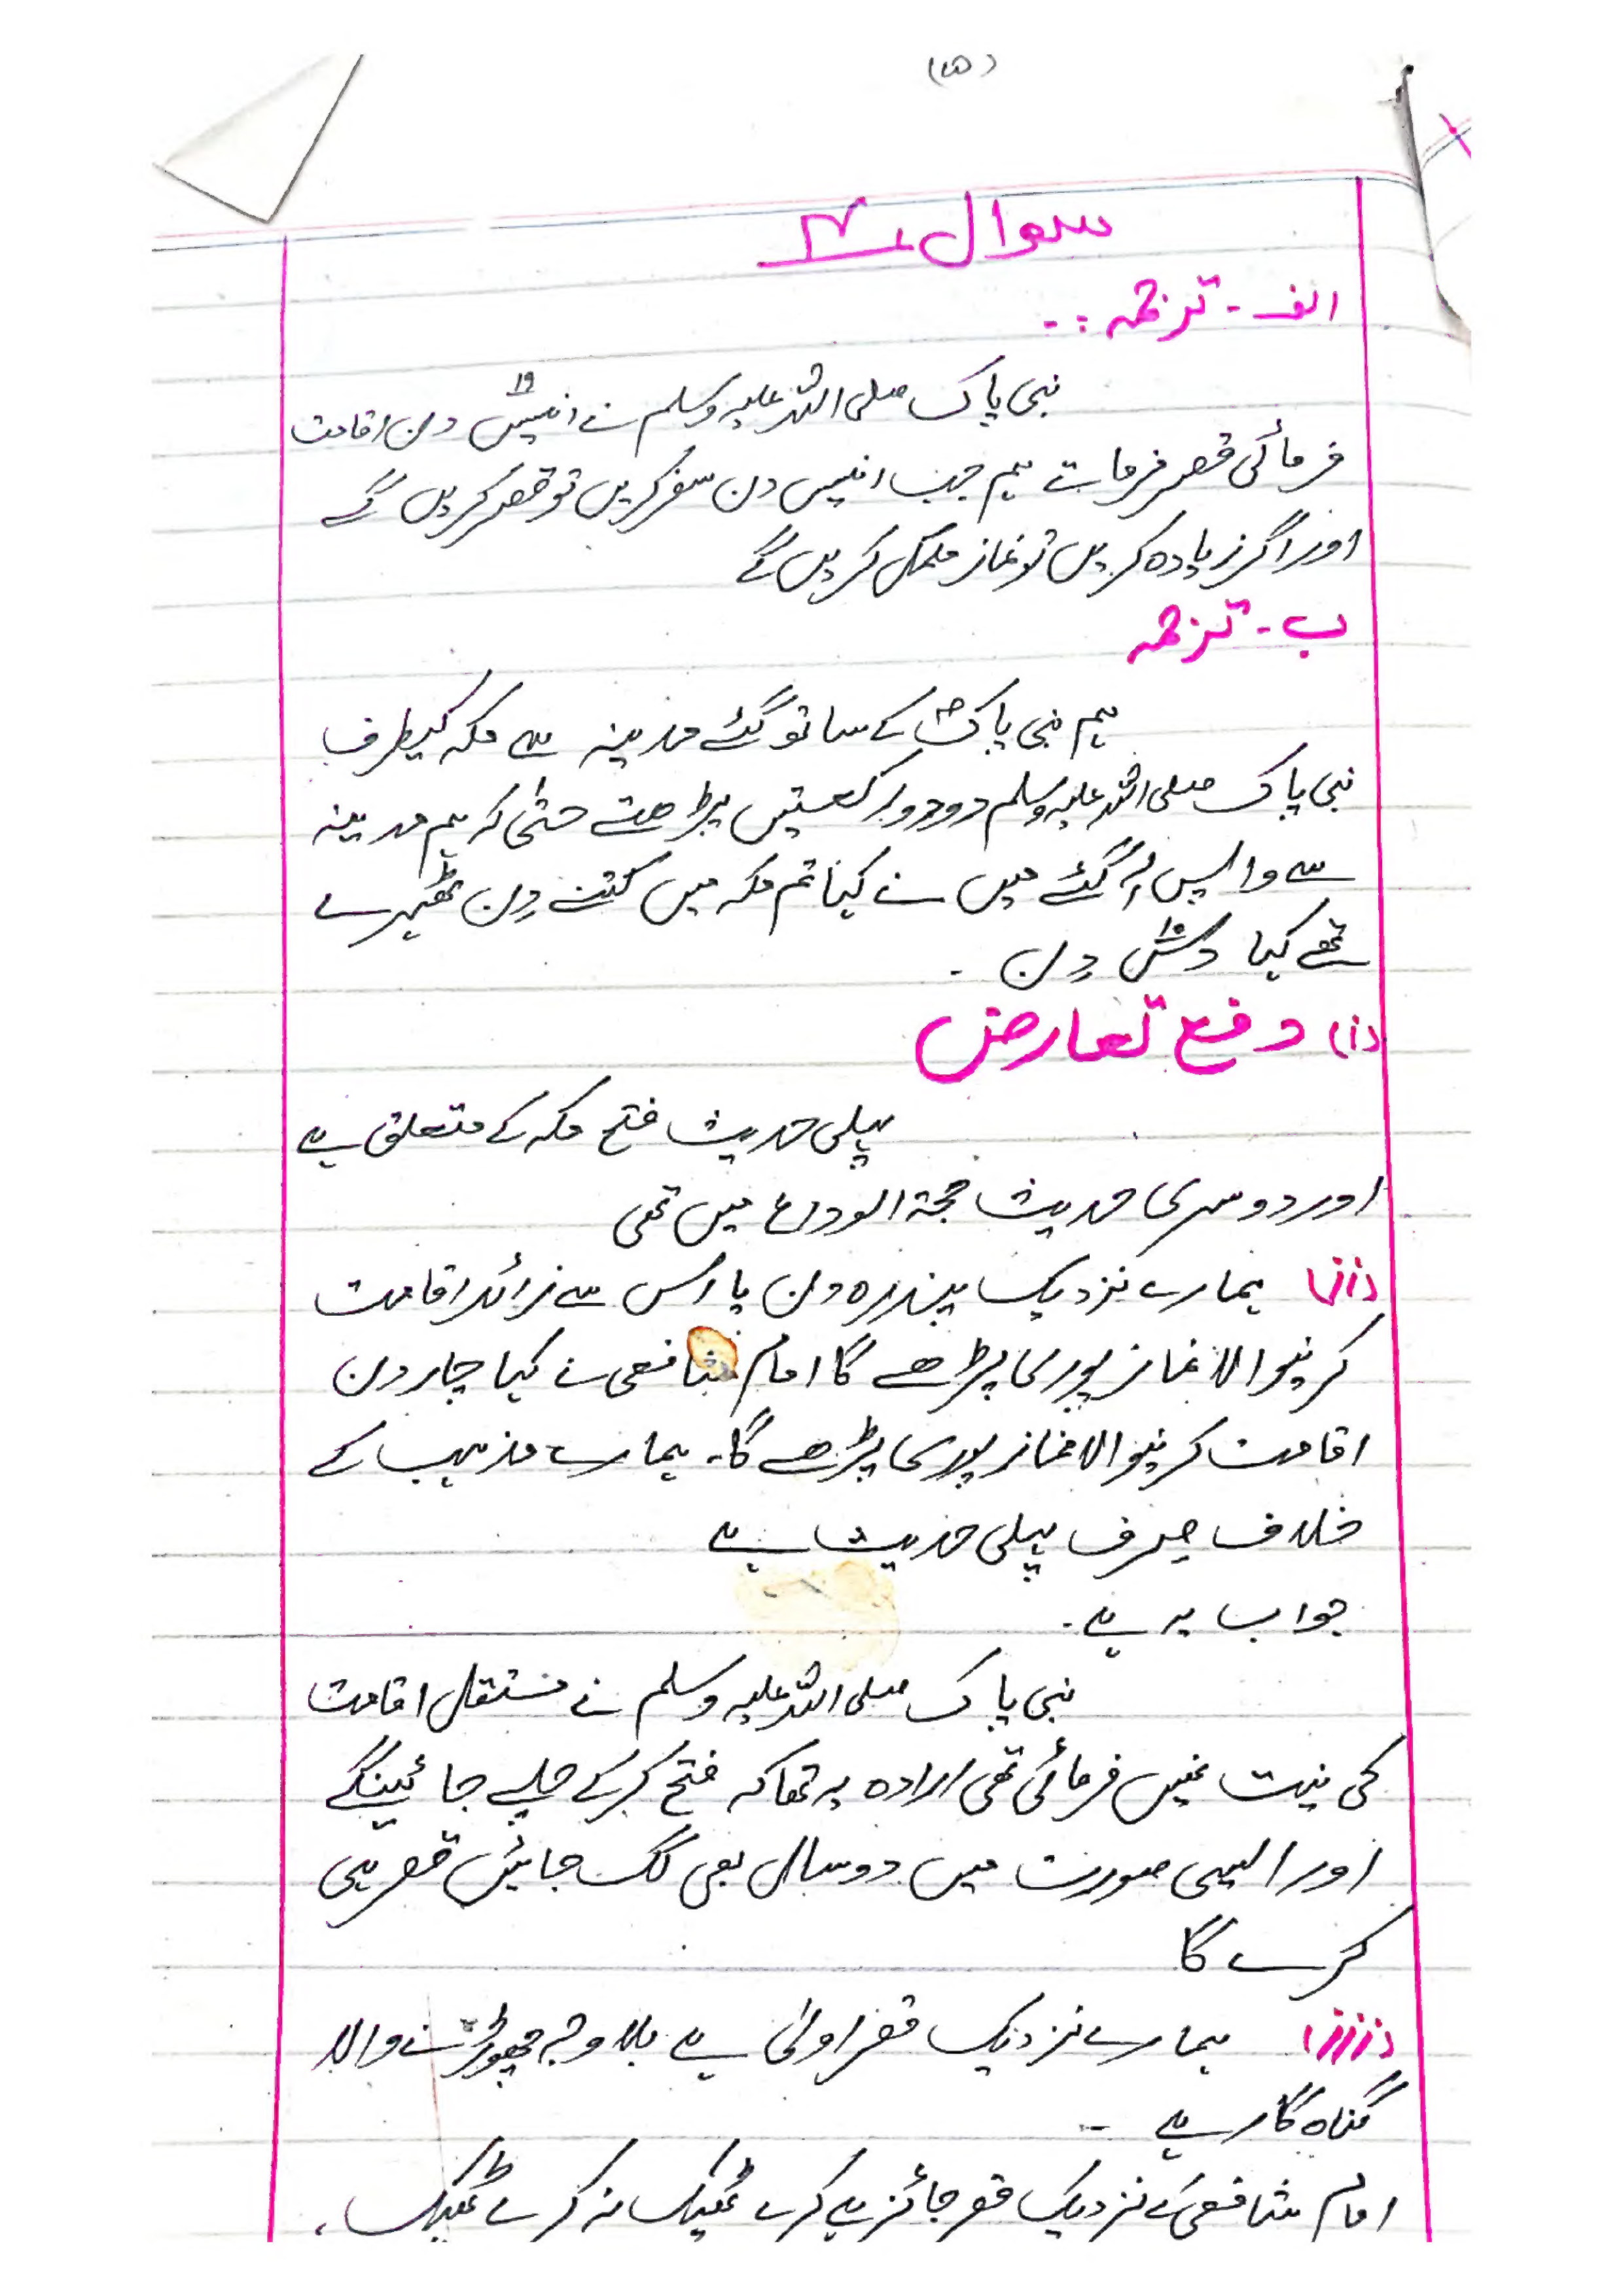 (۱۵)
سوال ۴
الف - ترجمہ : -
نبی پاک صلی اللہ علیہ وسلم نے انیس ۱۹ دن اقامت
فرمائی قصر فرماتے ہم جب انیس دن سفر کریں تو قصر کریں گے
اور اگر زیادہ کریں تو نماز مکمل کریں گے
ب - ترجمہ
ہم نبی پاک ؐ کے ساتھ گئے مدینہ سے مکہ کیطرف
نبی پاک صلی اللہ علیہ وسلم دو دو رکعتیں پڑھتے حتٰی کہ ہم مدینہ
سے واپس آ گئے میں نے کہا تم مکہ میں کتنے دن ٹھہرے
تھے کہا دس ۱۰ دن -
(i) دفع تعارض
پہلی حدیث فتح مکہ کے متعلق ہے
اور دوسری حدیث حجۃ الوداع میں تھی
(ii) ہمارے نزدیک پندرہ دن یا اس سے زائد اقامت
کرنیوالا نماز پوری پڑھے گا امام شافعی نے کہا چار دن
اقامت کرنیوالا نماز پوری پڑھے گا۔ ہمارے مذہب کے
خلاف صرف پہلی حدیث ہے
جواب یہ ہے۔
نبی پاک صلی اللہ علیہ وسلم نے مستقل اقامت
کی نیت نہیں فرمائی تھی ارادہ یہ تھا کہ فتح کر کے چلے جائینگے
اور ایسی صورت میں دو سال بھی لگ جائیں قصر ہی
کرے گا
(iii) ہمارے نزدیک قصر اولٰی ہے بلا وجہ چھوڑنے والا
گناہ گار ہے -
امام شافعی کے نزدیک قصر جائز ہے کرے ٹھیک نہ کرے ٹھیک ۔